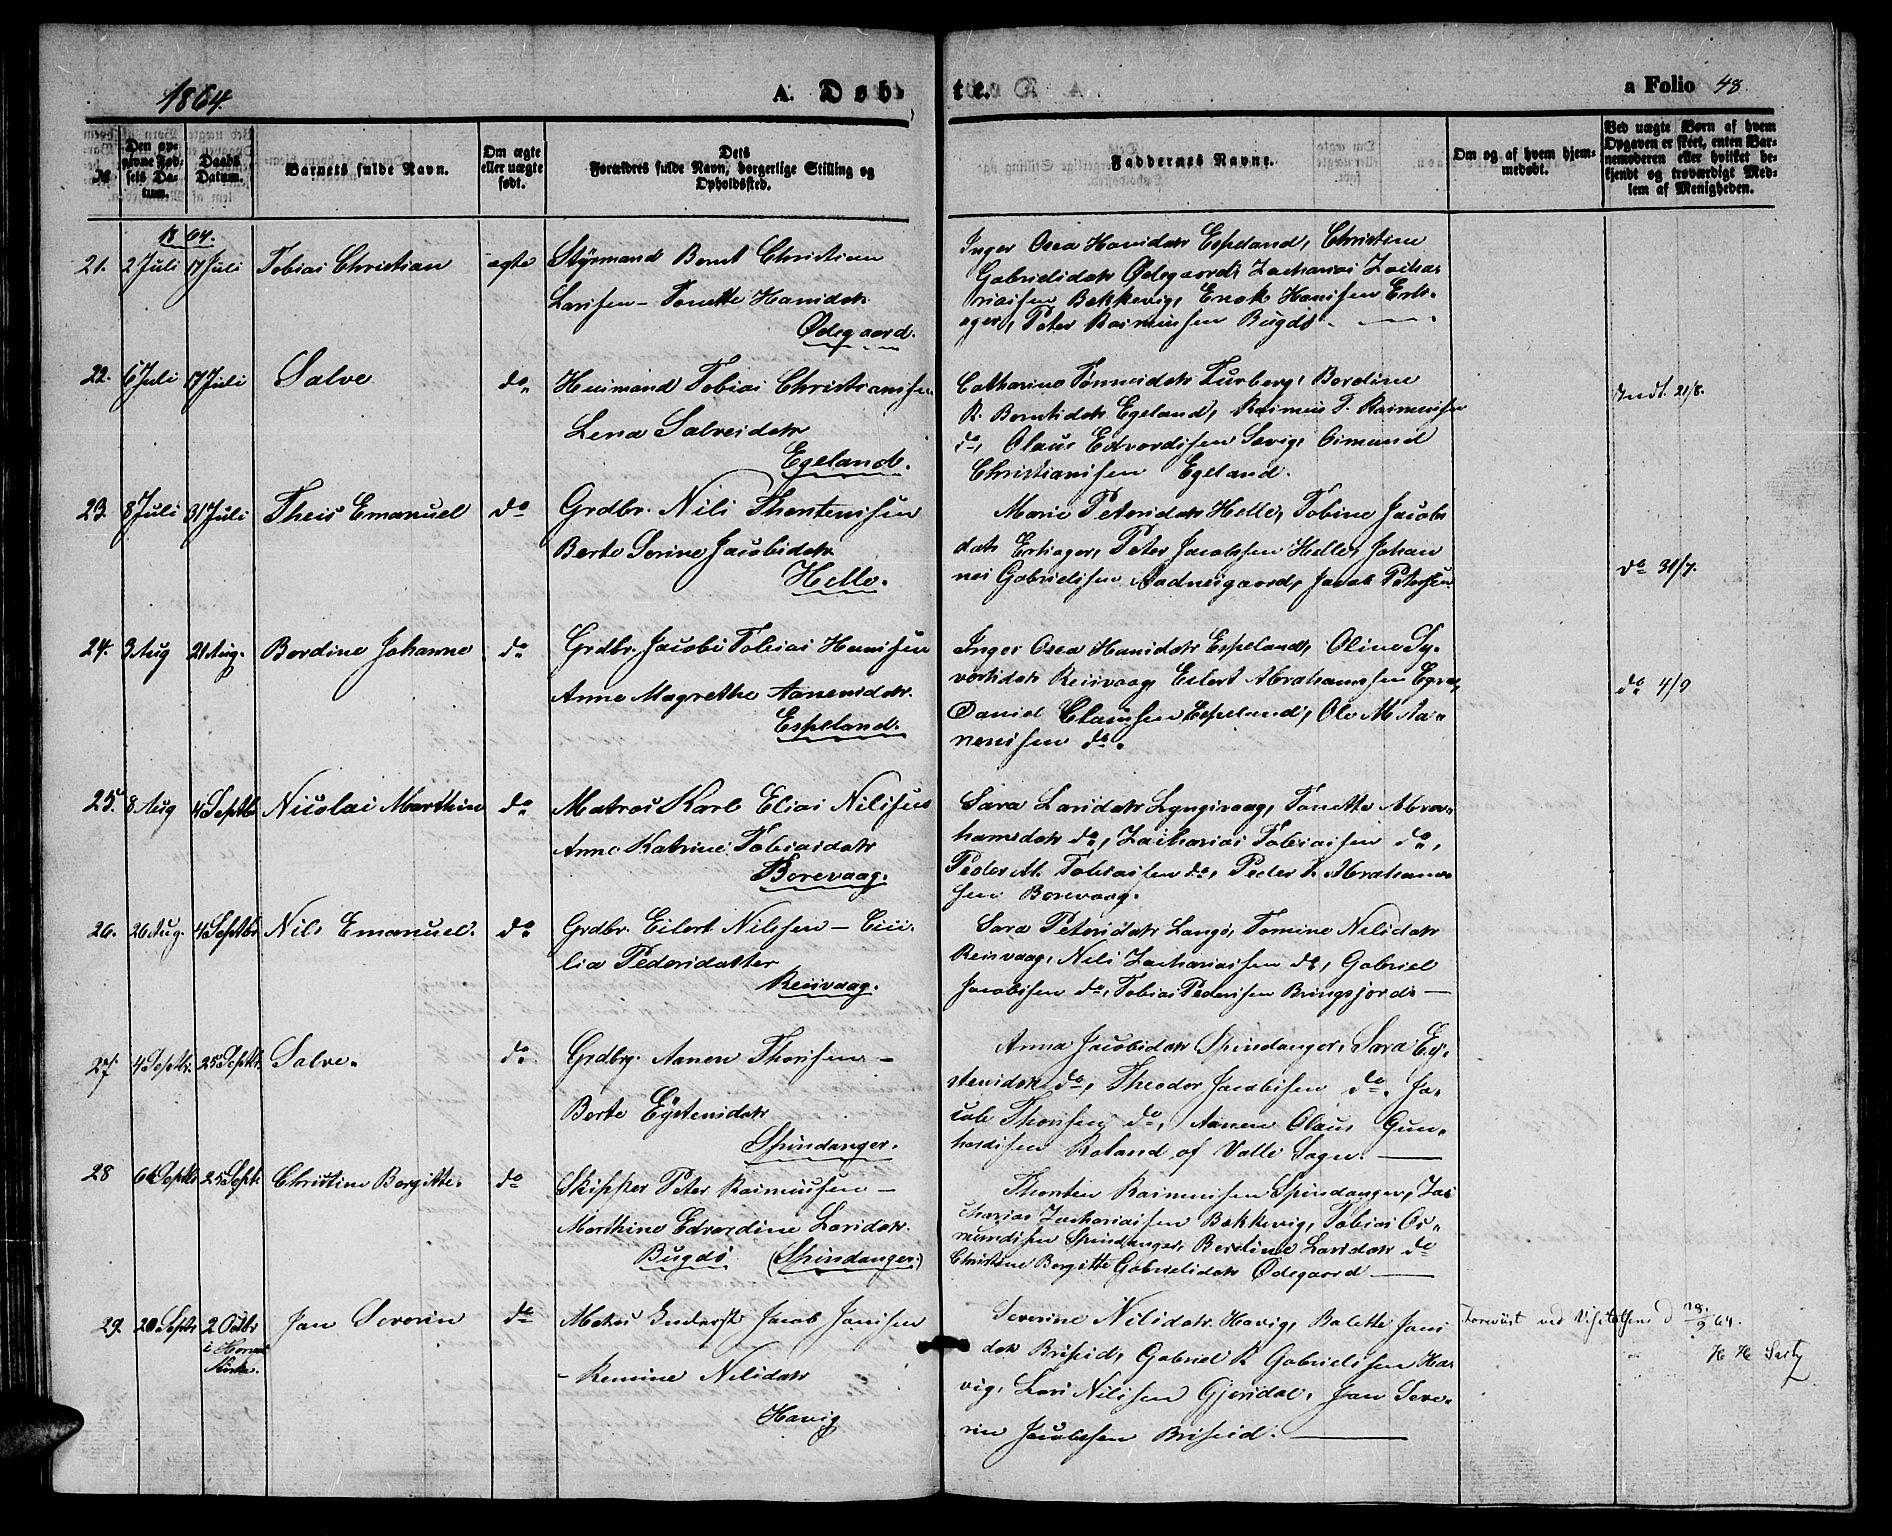 1864.
A. Døb-
te.
a Folio 48.
No
Den op-
givne Fød-
sels Da-
tum.
Daabs
Datum.
Barnets fulde Navn.
Om ægte
eller uægte
født.
Dets
Forældres fulde Navn, borgerlige Stilling og
Opholdssted.
Faddernes Navne.
Om og af hvem hjem-
medøbt.
Ved uægte Børn af hvem
Opgaven er skeet, enten Bar-
nemoderen eller hvilket be-
kjendt og troværdigt Med-
lem af Menigheden.
1864.
21. 2 Juli 17 Juli Tobias Christian ægte
Styrmand Bernt Christian
Larssen – Tonette Hansdatr
Ødegaard.
Inger Osea Hansdatr Espeland, Christine
Gabrielsdatr Ødegaard, Zacharias Zacha-
riassen Bakkevig, Enok Hanssen Erts-
ager, Peter Rasmussen Bugdø.
22. 6 Juli 17 Juli Salve do
Huusmand Tobias Christianssen
Lena Salvesdatr
Egeland.
Catharine Tønnesdatr Furberg, Berdine
R. Berntsdatr Egeland, Rasmus T. Rasmussen
do, Olaus Edvardssen Sevig, Osmund
Christianssen Egeland.
Indt. 21/8.
23. 8 Juli 31 Juli Theis Emanuel do
Grdbr. Nils Thorstenssen
Berte Serine Jacobsdatr
Helle.
Marie Petersdatr Helle, Tobine Jacobs
datr Ertsager, Peter Jacobssen Helle, Johan
nes Gabrielssen Aadnesgaard, Jacob Petersen
do 31/7.
24. 3 Aug 21 Aug. Berdine Johanne do
Grdbr. Jacob Tobias Hanssen
Anne Magrethe Aanensdatr.
Espeland.
Inger Osea Hansdatr Espeland, Oline Sy-
vertsdatr Reisvaag, Eilert Abrahamssen
Daniel Claussen Espeland, Ole M. Aa-
nenssen do.
do 4/9
25. 8 Aug 4 Septbr Nicolai Marthin do
Matros Karl Elias Nilssen
Anne Katrine Tobiasdatr
Borevaag.
Sara Larsdatr Lyngsvaag, Tonette Abra-
hamsdatr do, Zacharias Tobiassen do,
Peder M. Tobiassen do, Peder T. Abraham-
sen Borevaag.
26. 26 Aug. 4 Septbr Nils Emanuel. do
Grdbr. Eilert Nilssen – Ceci-
lia Pedersdatter
Reisvaag.
Sara Petersdatr Langø, Tomine Nilsdatr
Reisvaag, Nils Zachariassen do, Gabriel
Jacobssen do, Tobias Pederssen Bringsjord –
27. 4 Septbr. 25 Septbr. Salve. do
Grdbr. Aanen Thorssen –
Berte Eystensdatr
Spindanger.
Anna Jacobsdatr Spindanger, Sara Ey-
stensdatr do, Theodor Jacobssen do, Ja-
cob Thorssen do, Aanen Olaus Gun-
hardssen Roland af Valle Sogn. –
28 6 Septbr 25 Septbr. Christine Bergitte. do
Skipper Peter Rasmussen –
Marthine Edvardine Larsdatr.
Bugdø (Spindanger)
Thorsten Rasmussen Spindanger, Zac
charias Zachariassen Bakkevig, Tobias Os-
mundssen Spindanger, Berdine Larsdatr do
Christine Bergitte Gabrielsdatr Ødegaard –
29. 20 Septbr 2 Octbr
i Herreds
Kirke.
Jan Severin do
Matros Jacob Janssen
– Remine Nilsdatr
Havig
Severine Nilsdatr Havig, Balette Jans
datr Briseid, Gabriel R. Gabrielssen Ha-
vig, Lars Nilssen Gjersdal, Jan Seve-
rin Jacobssen Briseid. –
Forevist ved Visitatsen d 28/9 64.